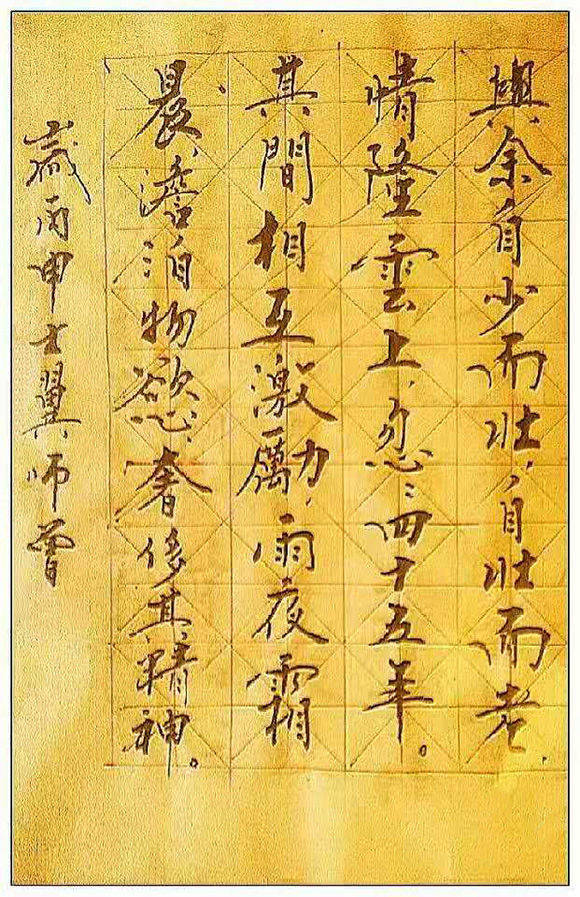 與余自少而壯，自壯而老
情隆雲上，忽〻四十五年。
其間相互激勵，雨夜霜
晨，澹泊物慾，奢侈其精神。
歲丙申士翼師曾